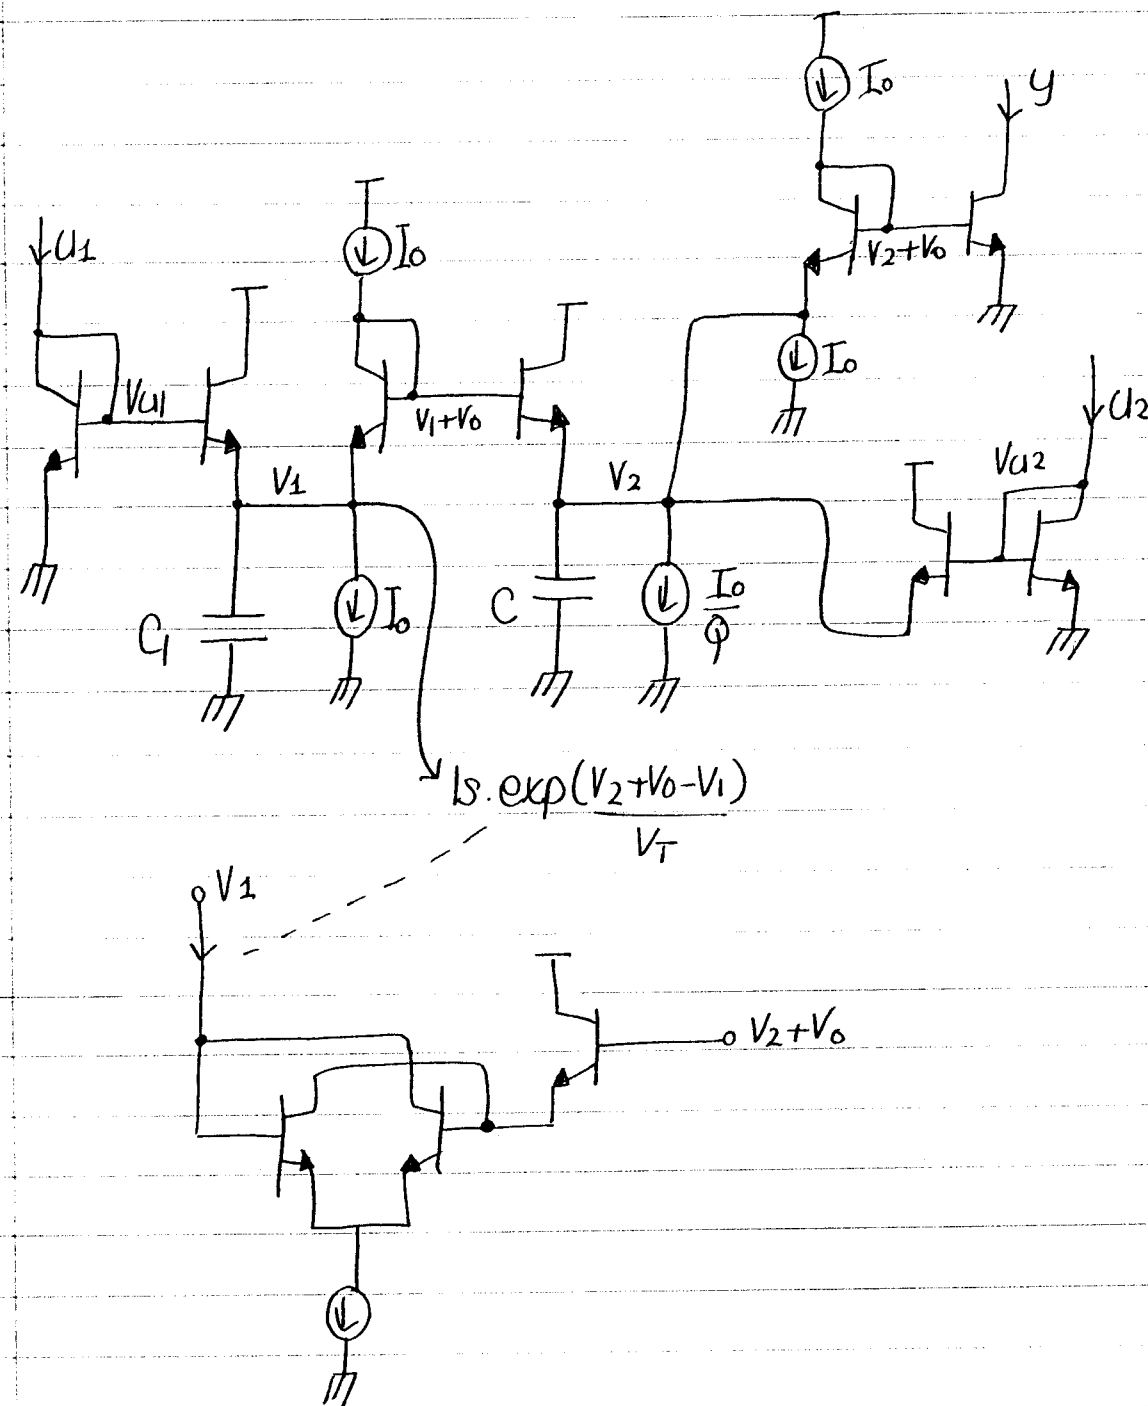 I₀
y
u1
I₀
V₂+V₀
Vu1
V₁+V₀
I₀
u2
Vu2
V1
V2
C₁
I₀
C
I₀
Q
Is.exp(V₂+V₀-V₁)
V_T
V1
V₂+V₀